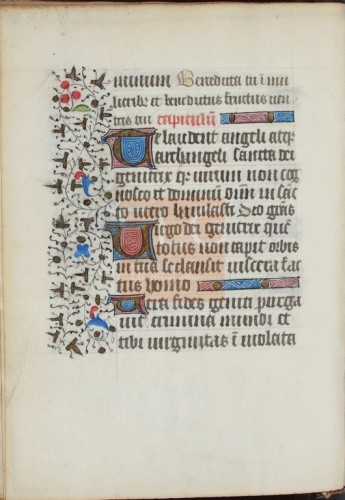 minum Benedicta tu ī mu
lieribꝫ et benedictus fructus uen
tris tui capitulū
Te laudent angeli atqꝫ
archangeli sancta dei
genitrix qꝫ uirum non cog
nosco et dominū in sac
to utero baiulasti Deo gras
Uirgo dei genitrix que
totus non capit orbis
in tua se clausit uiscera fac
tus homo
Uera fides geniti purga
uit crimina mundi et
tibi uirginitas ī uiolata